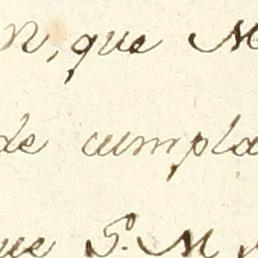 n, que M
de cumpla
que S. M